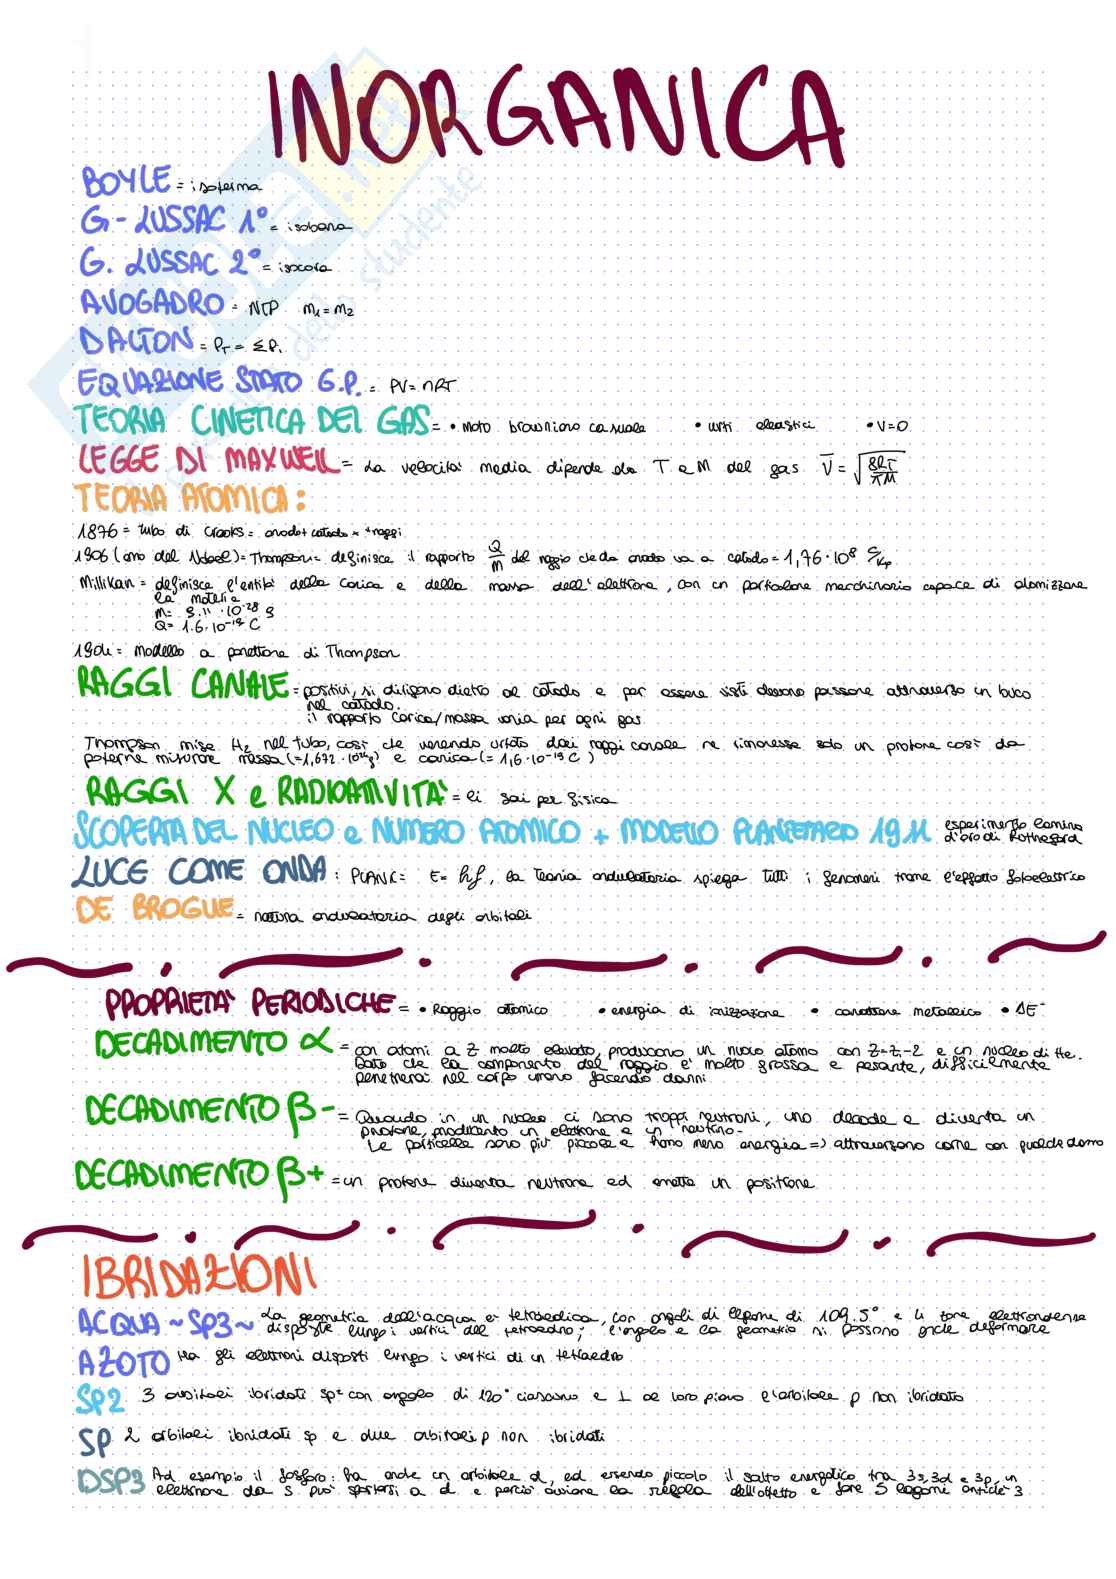 INORGANICA
BOYLE = isoterma
G-LUSSAC 1° = isobara
G. LUSSAC 2° = isocora
AVOGADRO = NTP m₁ = m₂
DALTON = P_T = ΣPᵢ
EQUAZIONE STATO G.P. = PV = nRT
TEORIA CINETICA DEI GAS = • Moto browniano casuale • urti elastici • V=0
LEGGE DI MAXWELL = La velocità media dipende da T e M del gas V̄ = √(8RT/πM)
TEORIA ATOMICA:
1876 = tubo di Crooks = anodo + catodo + raggi
1906 (anno del Nobel) = Thompson = definisce il rapporto Q/M del raggio che da anodo va a catodo = 1,76 · 10⁸ C/Kg
Millikan = definisce l'entità della carica e della massa dell'elettrone, con un particolare macchinario capace di atomizzare
la materia
M = 9.11 · 10⁻²⁸ g
Q = 1.6 · 10⁻¹⁹ C
1904 = Modello a panettone di Thompson
RAGGI CANALE = positivi, si dirigono dietro al catodo e per essere visti devono passare attraverso un buco
nel catodo.
il rapporto carica/massa varia per ogni gas
Thompson mise H₂ nel tubo, così che venendo urtato dai raggi canale ne rimanesse solo un protone così da
poterne misurare massa (=1,672 · 10⁻²⁴g) e carica (= 1,6 · 10⁻¹⁹ C)
RAGGI X e RADIOATTIVITA' = li sai per fisica
SCOPERTA DEL NUCLEO e NUMERO ATOMICO + MODELLO PLANETARIO 1911 esperimento lamina
d'oro di Rotheford
LUCE COME ONDA: PLANK = E = hf, la Teoria ondulatoria spiega tutti i fenomeni tranne l'effetto fotoelettrico
DE BROGLIE = natura ondulatoria degli orbitali
PROPRIETA' PERIODICHE = • Raggio atomico • energia di ionizzazione • carattere metallico • ΔE⁻
DECADIMENTO α = con atomi a Z molto elevato, producono un nuovo atomo con Z=Z-2 e un nucleo di He.
Dato che la componente del raggio è molto grossa e pesante, difficilmente
penetrerà nel corpo umano facendo danni.
DECADIMENTO β- = Quando in un nucleo ci sono troppi neutroni, uno decade e diventa un
protone, producento un elettrone e un neutrino.
Le particelle sono più piccole e hanno meno energia => attraversano carne con qualche danno
DECADIMENTO β+ = un protone diventa neutrone ed emette un positrone
IBRIDAZIONI
ACQUA ~ SP3 ~ La geometria dell'acqua è tetraedica, con angoli di legame di 109.5° e 4 zone elettrondense
disposte lungo i vertici del tetraedro; l'angolo e la geometria si possono anche deformare
AZOTO Ha gli elettroni disposti lungo i vertici di un tetraedro
SP2 3 orbitali ibridati sp² con angolo di 120° ciascuno e ⊥ al loro piano l'orbitale p non ibridato
SP 2 orbitali ibridati sp e due orbitali p non ibridati
DSP3 Ad esempio il fosforo: ha anche un orbitale d, ed essendo piccolo il salto energetico tra 3s, 3d e 3p, un
elettrone da s può spostarsi a d e perciò avviene la regola dell'ottetto e fare 5 legami anziché 3